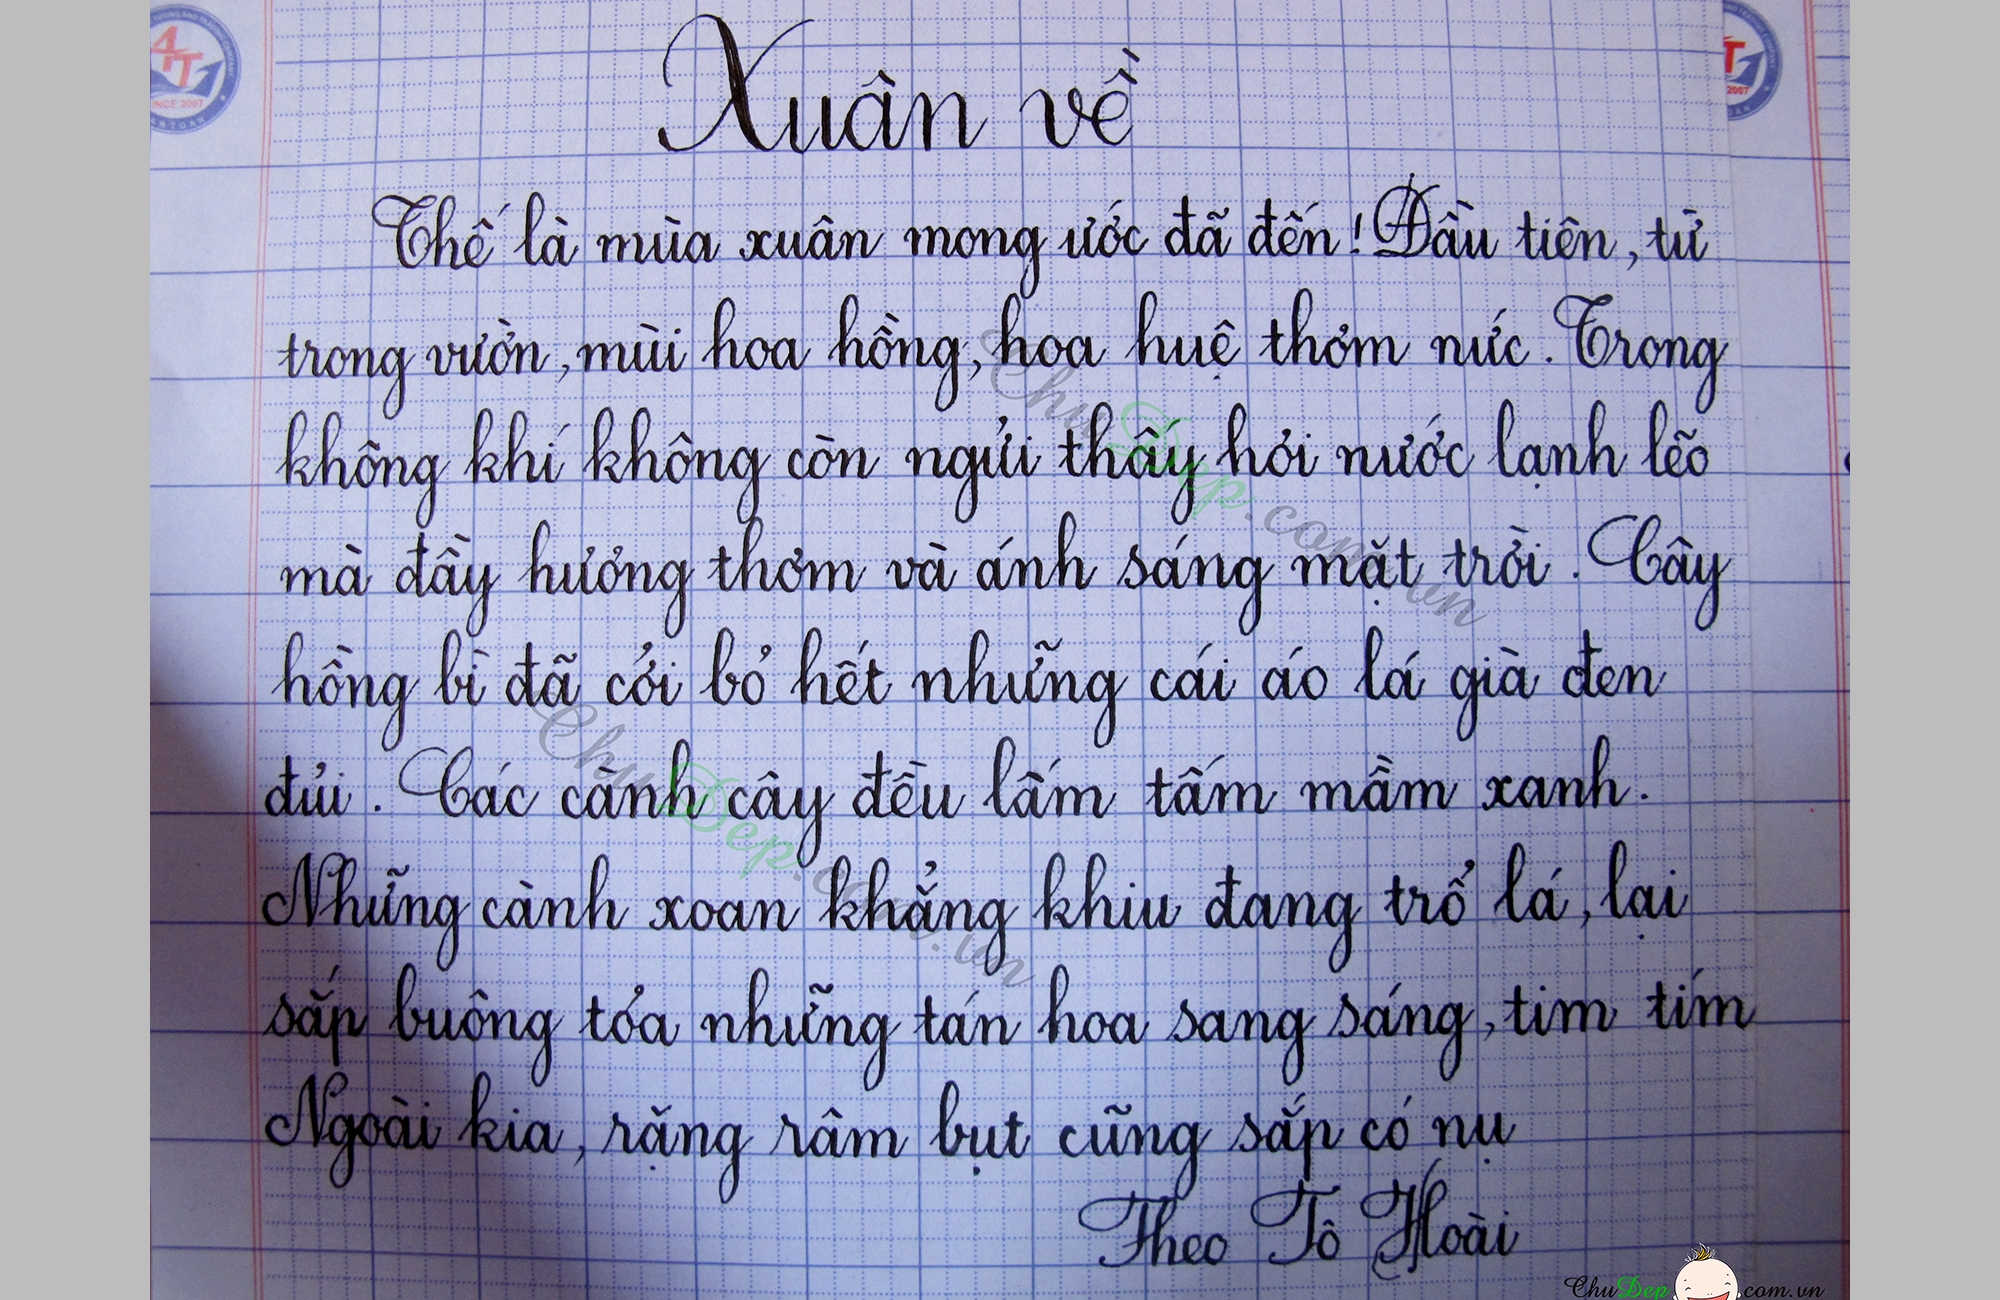 Xuân về
Thế là mùa xuân mong ước đã đến! Đầu tiên, từ
trong vườn, mùi hoa hồng, hoa huệ thơm nức. Trong
không khí không còn ngửi thấy hơi nước lạnh lẽo
mà đầy hương thơm và ánh sáng mặt trời. Cây
hồng bì đã cởi bỏ hết những cái áo lá già đen
đủi. Các cành cây đều lấm tấm mầm xanh.
Những cành xoan khẳng khiu đang trổ lá, lại
sắp buông tỏa những tán hoa sang sáng, tim tím
Ngoài kia, rặng râm bụt cũng sắp có nụ
Theo Tô Hoài
ChuDep.com.vn
ChuDep.com.vn
ChuDep com.vn
AT
SINCE 2007
AN TOAN
2007